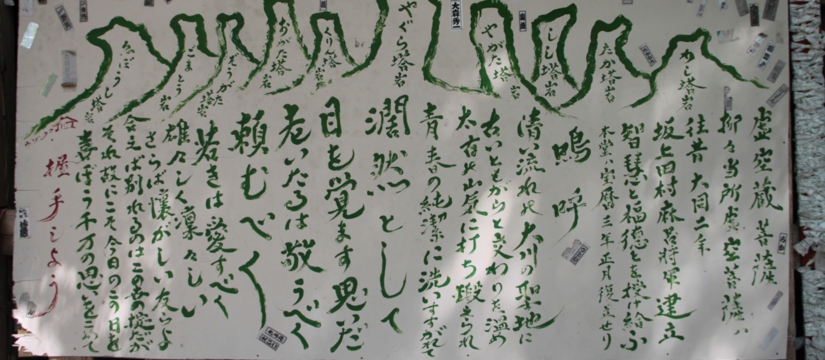 めし塔岩
たか塔岩
しし塔岩
やがた塔岩
やぐら塔岩
くり塔岩
おがた塔岩
ごまとう岩
えぼうし塔岩
虚空蔵菩薩
抑々当所虚空菩薩ハ
往昔大同二年
坂上田村麻呂将軍建立
智慧と福徳とを授け給ふ
本堂ハ宝暦三年正月復立せり
嗚呼
清い流れの大川の聖地に
古いともがらと交わりを温め
太古の山気に打ち鍛えられ
青春の純潔に洗いすがれて
濶然として
目も覚ます思いだ
老いたるは敬うべく
頼むべく
若きは愛すべく
雄々しく凛々しい
さらば懐かしい友らよ
会えば別れるのはこの世の定だが
それ故にこそ今日のこの日を
喜ぼう千万の思をこえ
握手しよう